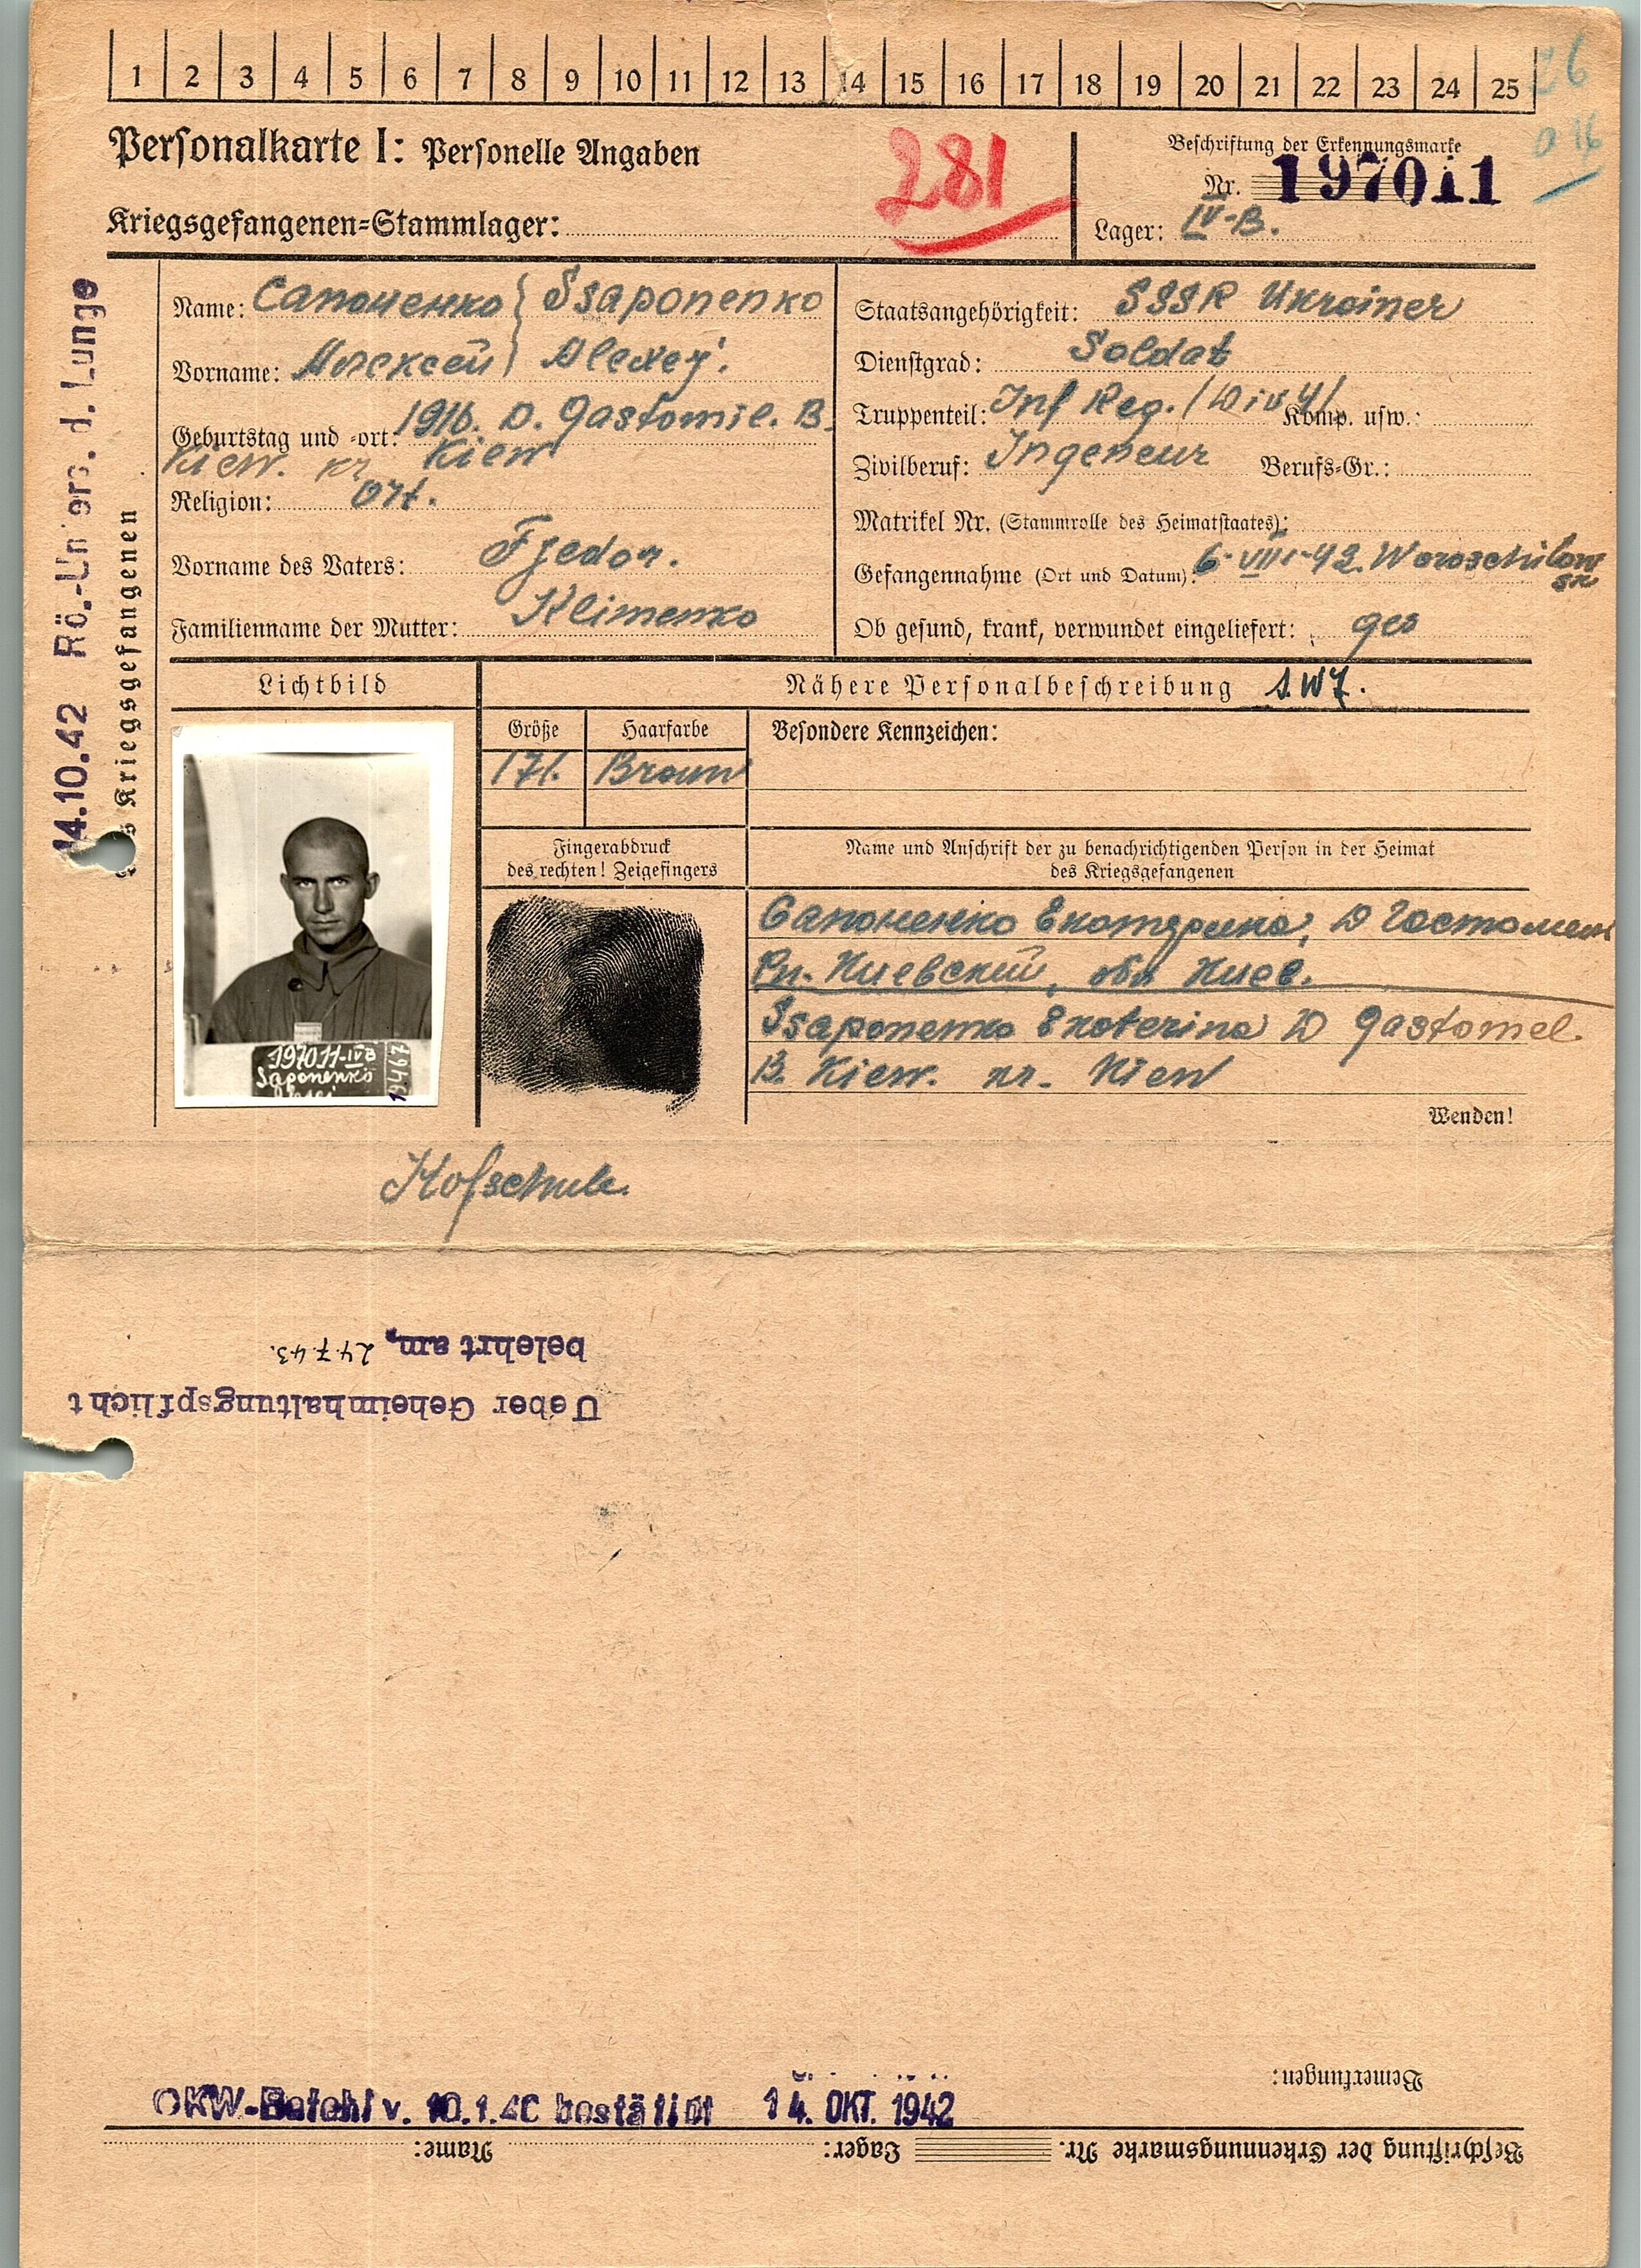 1 2 3 4 5 6 7 8 9 10 11 12 13 14 15 16 17 18 19 20 21 22 23 24 25
26
Personalkarte I: Personelle Angaben
281
Beschriftung der Erkennungsmarke
Nr. 197011
Kriegsgefangenen=Stammlager:
Lager: IV-B.
Name: Сапоненко } Ssaponenko
Vorname: Алексей } Alexej.
Geburtstag und =ort: 1916. D. Gastomil. B.
Kiew. kr Kiew
Religion: Ort.
Vorname des Vaters: Fjedor.
Familienname der Mutter: Klimenko
Staatsangehörigkeit: SSSR Ukrainer
Dienstgrad: Soldat
Truppenteil: Inf Reg. / Div 4/ Komp. usw.:
Zivilberuf: Ingeneur Berufs=Gr.:
Matrikel Nr. (Stammrolle des Heimatstaates):
Gefangennahme (Ort und Datum): 6-VIII-42. Woroschilow
sk
Ob gesund, krank, verwundet eingeliefert: ges
14.10.42 Rö.-Unters. d. Lunge
des Kriegsgefangenen
Lichtbild
Nähere Personalbeschreibung
Größe
Haarfarbe
Besondere Kennzeichen:
171.
Braun
Fingerabdruck
des rechten! Zeigefingers
Name und Anschrift der zu benachrichtigenden Person in der Heimat
des Kriegsgefangenen
Сапоненко Екатерина, Д Гостомель
Рн. Киевский, обл Киев.
Ssaponenko Ekaterina D Gastomel.
B. Kiew. kr. Kiew
197011-IVB
Saponenko
19467
Wenden!
Ueber Geheimhaltungspflicht
belehrt am, 24.7.43.
Bemerkungen:
OKW-Befehl v. 10.1.40 bestätigt 14. OKT. 1942
Beschriftung der Erkennungsmarke Nr. Lager: Name: